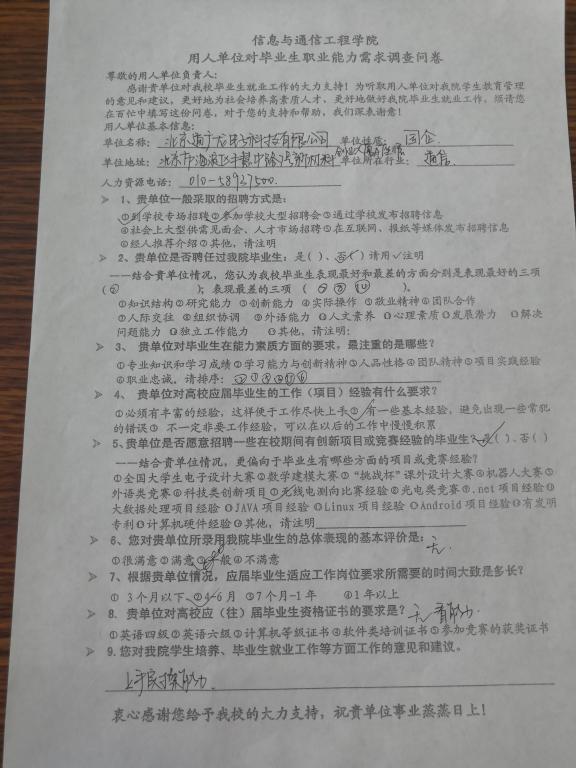 信息与通信工程学院
用人单位对毕业生职业能力需求调查问卷
尊敬的用人单位负责人:
感谢贵单位对我校毕业生就业工作的大力支持!为听取用人单位对我院学生教育管理
的意见和建议,更好地为社会培养高素质人才,更好地做好我院毕业生就业工作,烦请您
在百忙中填写这份问卷,对于您的支持和帮助,我们深表谢意!
用人单位基本信息:
单位名称: 北京 电子科技有限公司 单位性质: 国企
单位地址: 北京市海淀区 单位所在行业: 通信
人力资源电话: 010-58927500
➢ 1、贵单位一般采取的招聘方式是:
①到学校专场招聘②参加学校大型招聘会③通过学校发布招聘信息
④社会上大型供需见面会、人才市场招聘⑤在互联网、报纸等媒体发布招聘信息
⑥经人推荐介绍⑦其他,请注明
➢ 2、贵单位是否聘任过我院毕业生:是( )、否(✓)请用✓注明
——结合贵单位情况,您认为我校毕业生表现最好和最差的方面分别是表现最好的三项
( );表现最差的三项 ( )。
①知识结构②研究能力 ③创新能力 ④实际操作 ⑤敬业精神⑥团队合作
⑦人际交往 ⑧组织协调 ⑨外语能力 ⑩人文素养 ⑪心理素质⑫发展潜力 ⑬解决
问题能力 ⑭独立工作能力 ⑮其他,请注明:
➢ 3、 贵单位对毕业生在能力素质方面的要求,最注重的是哪些?
①专业知识和学习成绩②学习能力与创新精神③人品性格④团队精神⑤项目实践经验
⑥职业忠诚,请排序:
➢ 4、 贵单位对高校应届毕业生的工作(项目)经验有什么要求?
①必须有丰富的经验,这样便于工作尽快上手② 有一些基本经验,避免出现一些常犯
的错误③ 不一定非要工作经验,可以在以后的工作中慢慢积累
➢ 5、贵单位是否愿意招聘一些在校期间有创新项目或竞赛经验的毕业生?是(✓)、否( )
——结合贵单位情况,更偏向于毕业生有哪些方面的项目或竞赛经验?
①全国大学生电子设计大赛②数学建模大赛③“挑战杯”课外设计大赛④机器人大赛⑤
外语类竞赛⑥科技类创新项目⑦无线电测向比赛经验⑧光电类竞赛⑨.net项目经验⑩
大数据处理项目经验⑪JAVA项目经验⑫Linux项目经验⑬Android项目经验⑭有发明
专利⑮计算机硬件经验⑯其他,请注明
➢ 6、您对贵单位所录用我院毕业生的总体表现的基本评价是: 无.
①很满意②满意③一般④不满意
➢ 7、根据贵单位情况,应届毕业生适应工作岗位要求所需要的时间大致是多长?
① 3个月以下②4-6月 ③7个月-1年 ④1年以上
➢ 8. 贵单位对高校应(往)届毕业生资格证书的要求是? 无 看能力.
①英语四级②英语六级③计算机等级证书④软件类培训证书⑤参加竞赛的获奖证书
➢ 9.您对我院学生培养、毕业生就业工作等方面工作的意见和建议。
上手实操能力.
衷心感谢您给予我校的大力支持,祝贵单位事业蒸蒸日上!